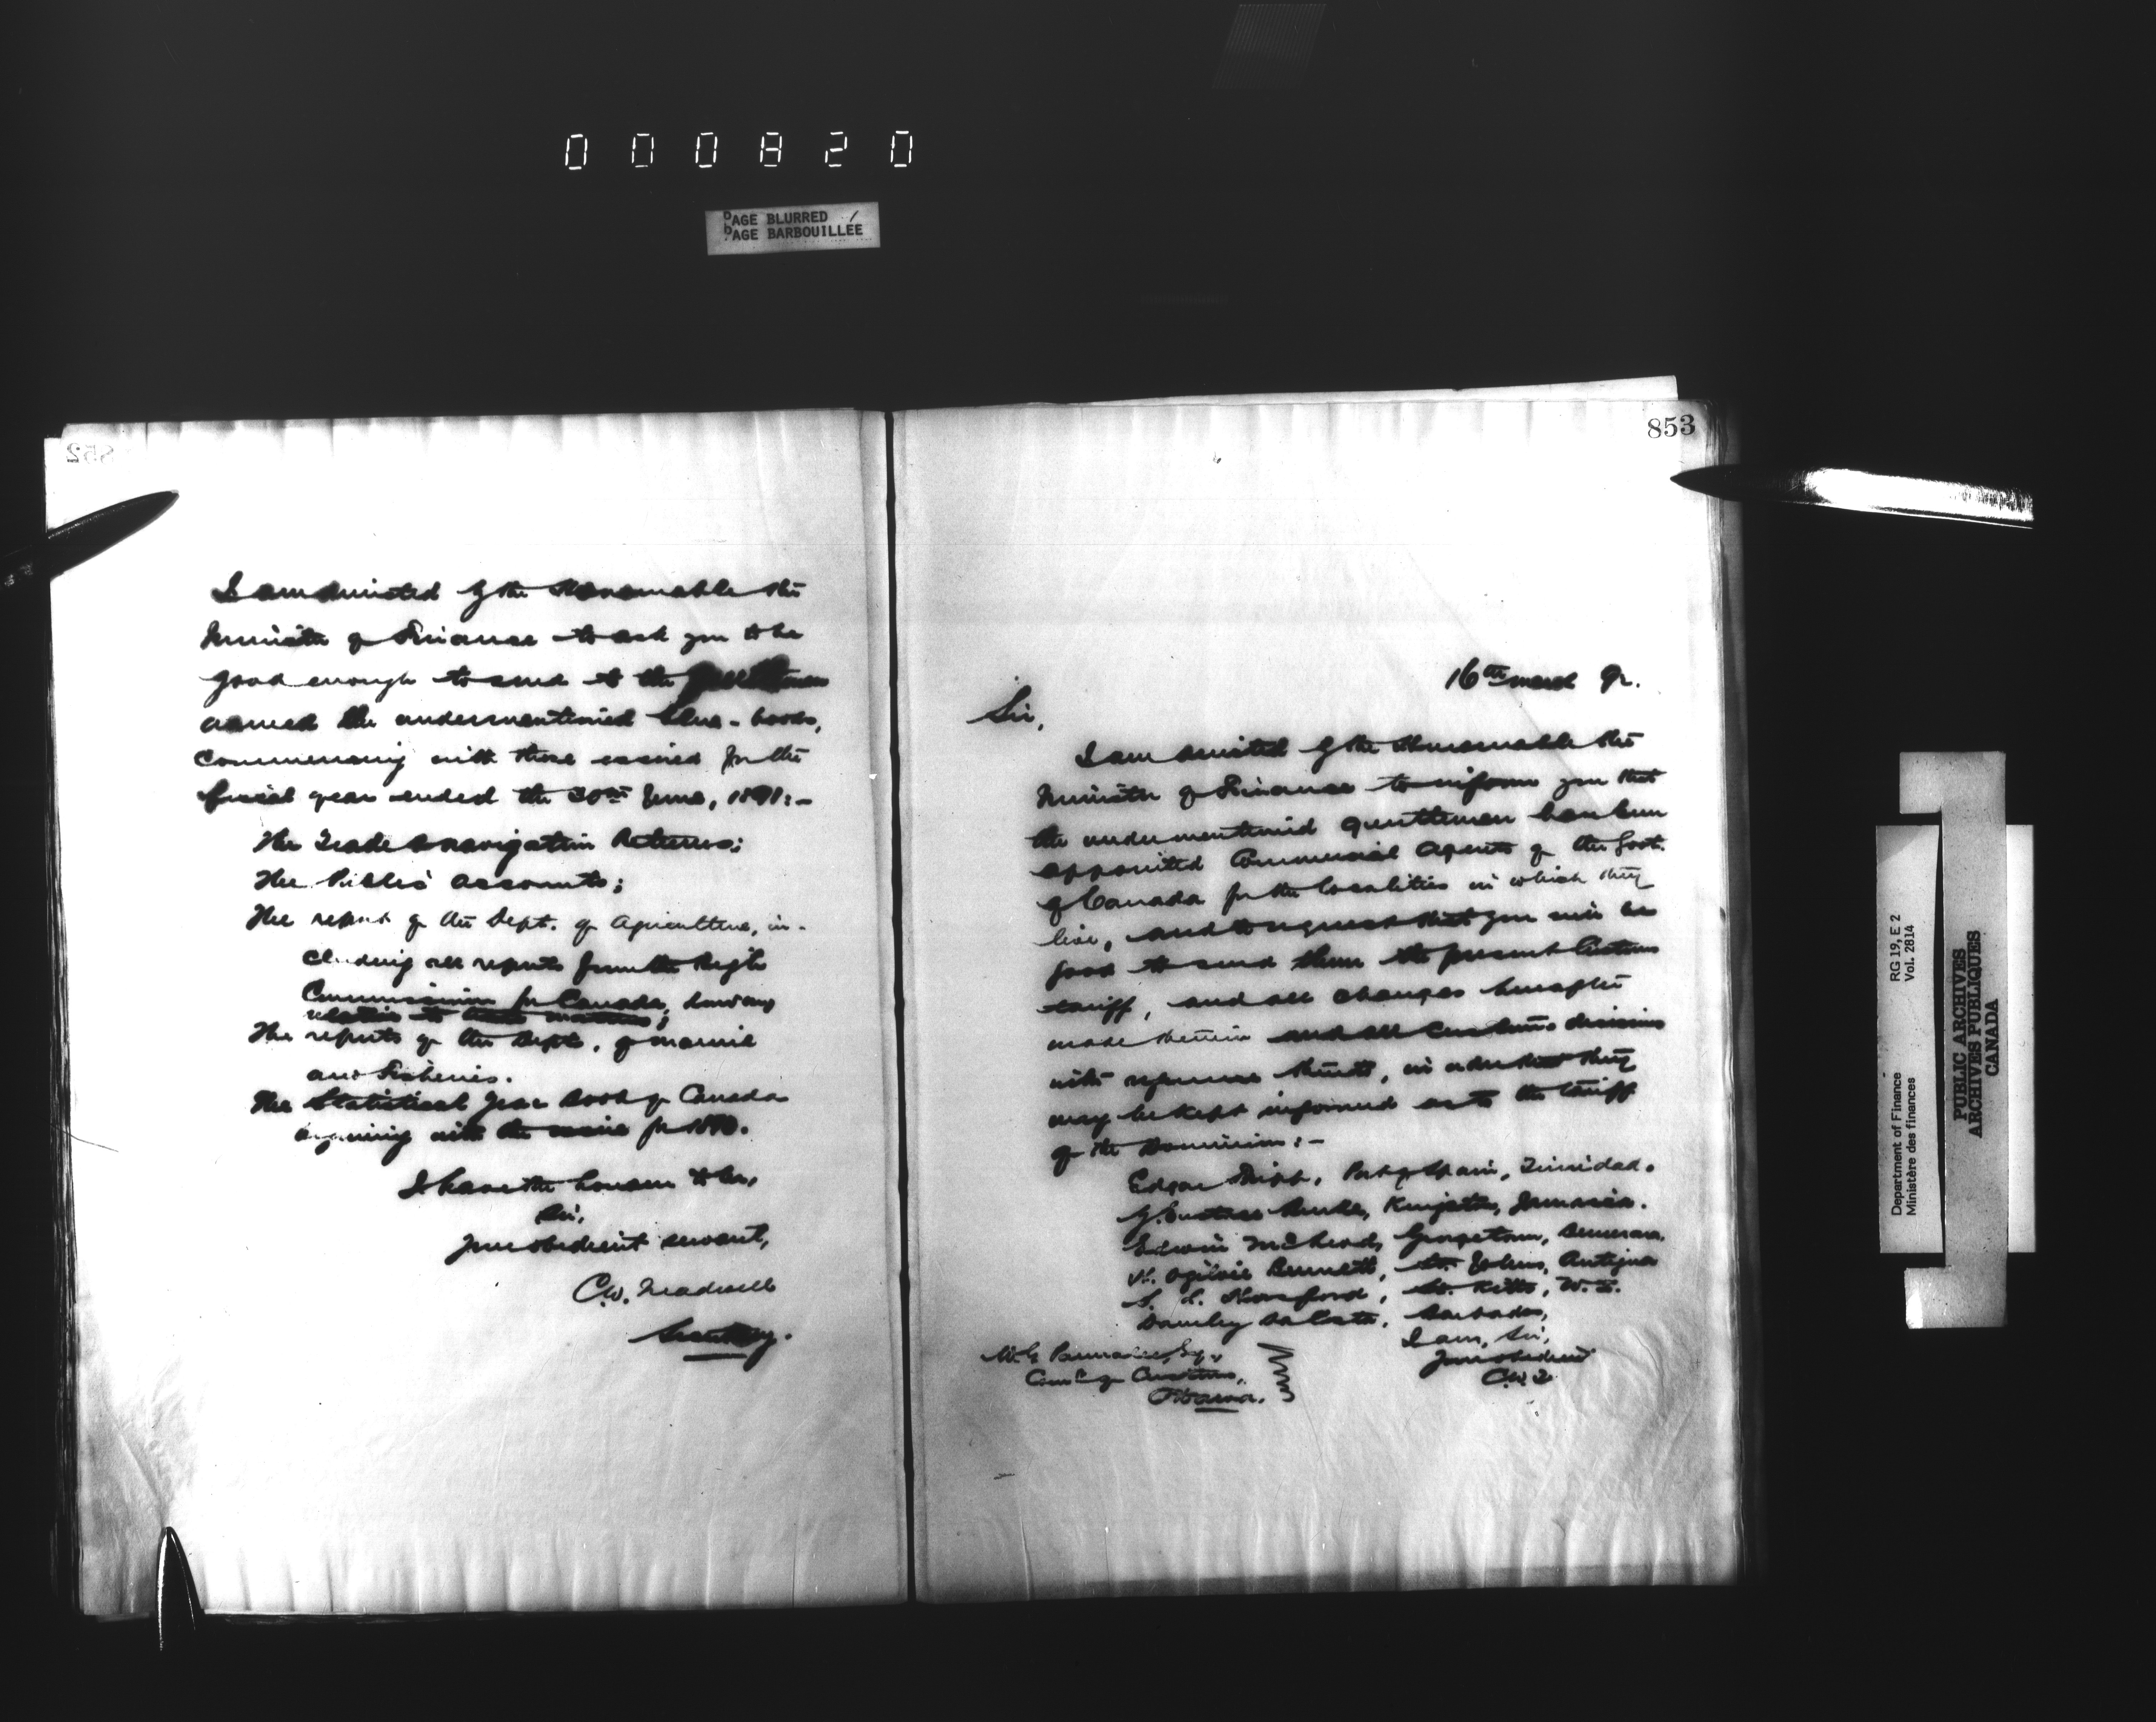 000820
PAGE BLURRED
PAGE BARBOUILLÉE
852
I am directed by the Honourable the
Minister of Finance to ask you to be
good enough to send to the gentlemen
named the undermentioned blue-books,
commencing with those issued for the
fiscal year ended the 30th June, 1891:-
The Trade & Navigation Returns;
The Public Accounts;
The report of the Dept. of Agriculture, in-
cluding all reports from the High
Commissioner for Canada,
relating to
The reports of the Dept. of Marine
and Fisheries.
The Statistical Year Book of Canada
beginning with the issue for 1890.
I have the honour to be,
Sir,
Your obedient servant,
C.W. Treadwell
Secretary.
853
16th March 92.
Sir,
I am directed by the Honourable the
Minister of Finance to inform you that
the undermentioned gentlemen have been
appointed Commercial Agents of the Govt.
of Canada for the localities in which they
live, and to request that you will be
good to send them the present Customs
tariff, and all changes hereafter
made therein and all Customs decisions
with reference thereto, in order that they
may be kept informed as to the tariff
of the Dominion:-
Edgar Tripp, Port of Spain, Trinidad.
G. Eustace Burke, Kingston, Jamaica.
Edwin McLeod, Georgetown, Demerara.
H. Ogilvie Bennett, St. Johns, Antigua
S. L. Horsford, St. Kitts, W.I.
Darnley DaCosta, Barbados,
I am, Sir,
Your obedient
C.W.T
W.G. Parmalee, Esq.,
Comr of Customs,
Ottawa.
Department of Finance
Ministère des finances
RG 19, E 2
Vol. 2814
PUBLIC ARCHIVES
ARCHIVES PUBLIQUES
CANADA